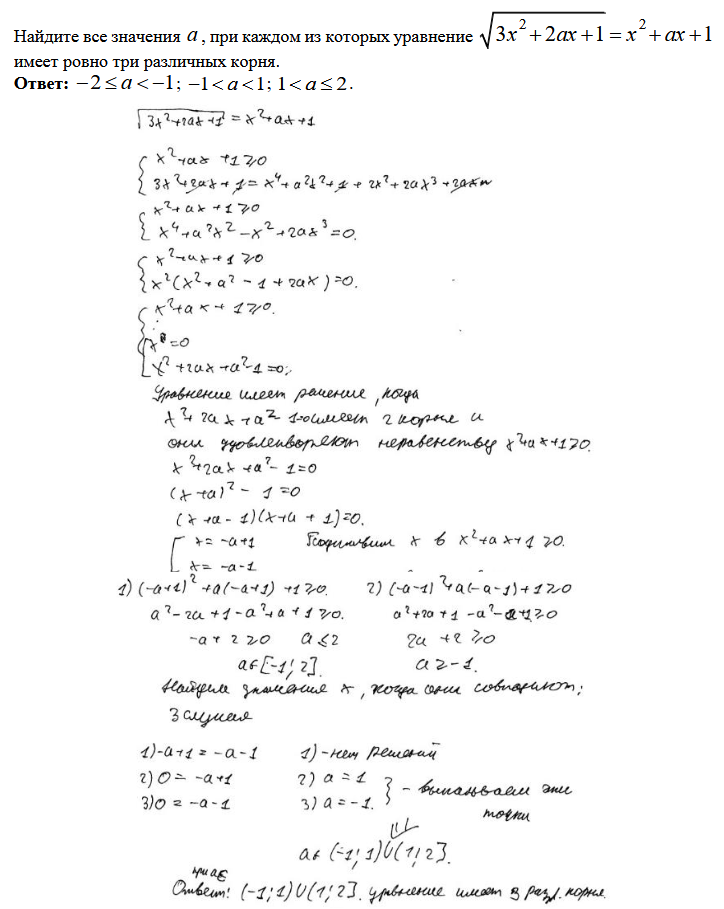 Найдите все значения a, при каждом из которых уравнение √(3x²+2ax+1) = x²+ax+1
имеет ровно три различных корня.
Ответ: −2 ≤ a < −1; −1 < a < 1; 1 < a ≤ 2.
√(3x²+2ax+1) = x²+ax+1
{ x²+ax+1≥0
3x²+2ax+1 = x⁴+a²x²+1+2x²+2ax³+2ax
{ x²+ax+1≥0
x⁴+a²x²−x²+2ax³=0.
{ x²+ax+1≥0
x²(x²+a²−1+2ax)=0.
{ x²+ax+1≥0.
[ x=0
x²+2ax+a²−1=0;
Уравнение имеет решение, когда
x²+2ax+a²−1=0 имеет 2 корня и
они удовлетворяют неравенству x²+ax+1≥0.
x²+2ax+a²−1=0
(x+a)²−1=0
(x+a−1)(x+a+1)=0.
[ x=−a+1 Подставим x в x²+ax+1≥0.
x=−a−1
1) (−a+1)²+a(−a+1)+1≥0. 2) (−a−1)²+a(−a−1)+1≥0
a²−2a+1−a²+a+1≥0. a²+2a+1−a²−a+1≥0
−a+2≥0 a≤2 2a+2≥0
a∈[−1;2]. a≥−1.
Найдем значения x, когда они совпадают;
3 случая
1) −a+1=−a−1 1) – нет решений
2) 0=−a+1 2) a=1
3) 0=−a−1 3) a=−1. } – выкалываем эти
точки
⇓
a∈(−1;1)∪(1;2].
при a∈
Ответ: (−1;1)∪(1;2]. уравнение имеет 3 разл. корня.